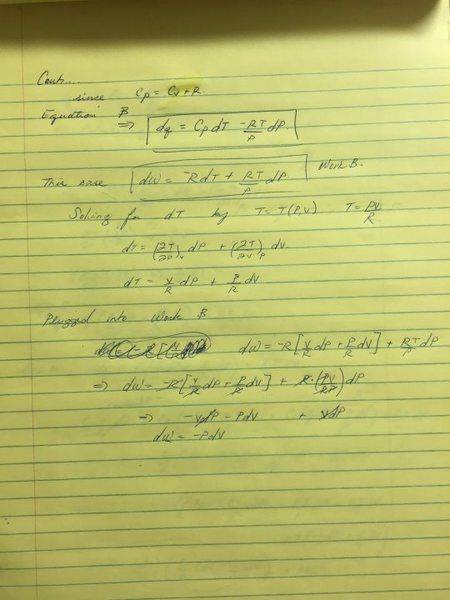 Cont....
since Cp = Cv + R
Equation B
⇒ dq = CpdT - RT/P dP.
This case dW = -RdT + RT/P dP Work B.
Solving for dT by T = T(P,V) T = PV/R
dT = (∂T/∂P)v dP + (∂T/∂V)P dV
dT = V/R dP + P/R dV
Plugged into Work B
dW = -R[V/R dP + P/R dV] + RT/P dP
⇒ dW = -R[V/R dP + P/R dV] + R·(PV/RP) dP
⇒ -VdP - PdV + VdP
dW = -PdV